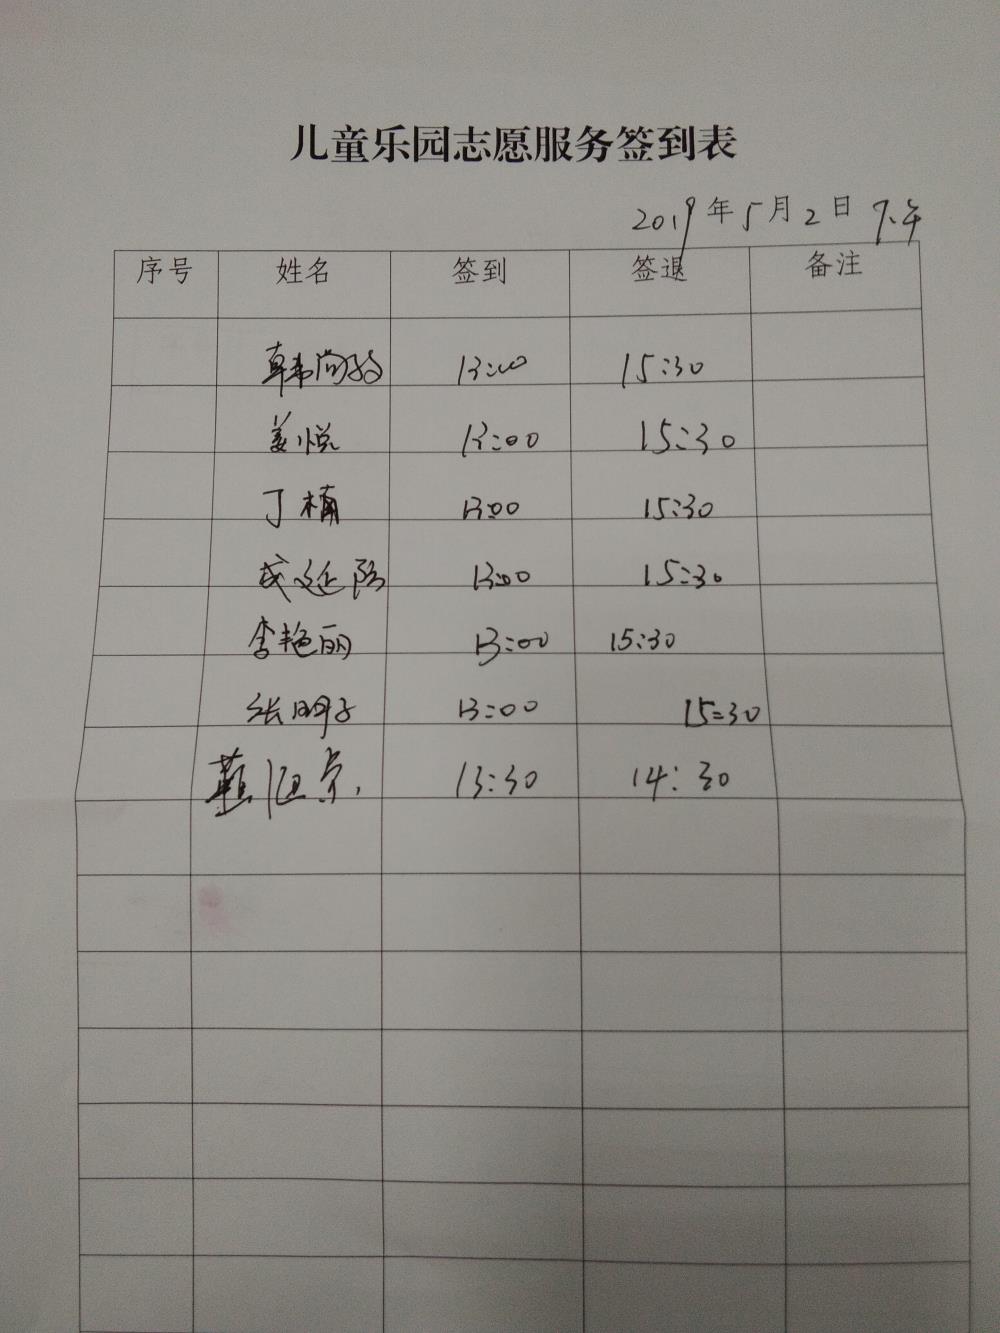 儿童乐园志愿服务签到表
2019年5月2日 下午
序号 姓名 签到 签退 备注
韩尚 13:00 15:30
姜悦 13:00 15:30
丁楠 13:00 15:30
成延 13:00 15:30
李艳丽 13:00 15:30
张明子 13:00 15:30
13:30 14:30